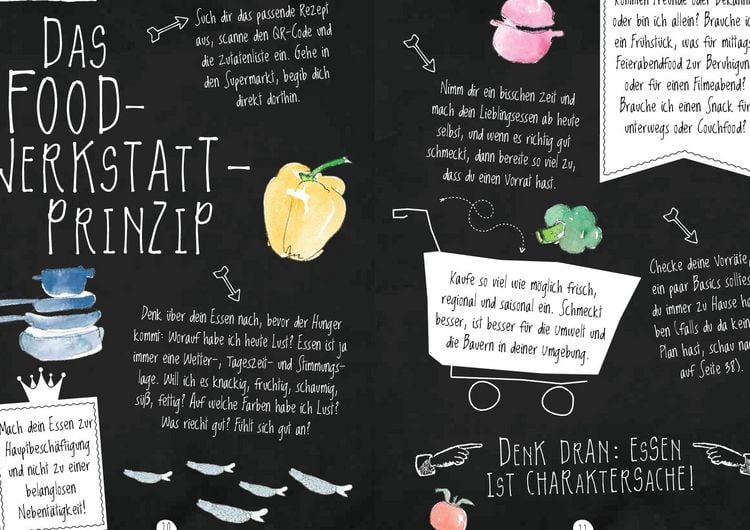 DAS
FOOD-
WERKSTATT-
PRINZIP
Such dir das passende Rezept
aus, scanne den QR-Code und
die Zutatenliste ein. Gehe in
den Supermarkt, begib dich
direkt dorthin.
Denk über dein Essen nach, bevor der Hunger
kommt: Worauf habe ich heute Lust? Essen ist ja
immer eine Wetter-, Tageszeit- und Stimmungs-
lage. Will ich es knackig, fruchtig, schaumig,
süß, fettig? Auf welche Farben habe ich Lust?
Was riecht gut? Fühlt sich gut an?
Mach dein Essen zur
Hauptbeschäftigung
und nicht zu einer
belanglosen
Nebentätigkeit!
10
Nimm dir ein bisschen Zeit und
mach dein Lieblingsessen ab heute
selbst, und wenn es richtig gut
schmeckt, dann bereite so viel zu,
dass du einen Vorrat hast.
kommen Freunde oder Bekannte
oder bin ich allein? Brauche ich
ein Frühstück, was für mittags
Feierabendfood zur Beruhigung
oder für einen Filmeabend?
Brauche ich einen Snack für
unterwegs oder Couchfood?
Kaufe so viel wie möglich frisch,
regional und saisonal ein. Schmeckt
besser, ist besser für die Umwelt und
die Bauern in deiner Umgebung.
Checke deine Vorräte,
ein paar Basics solltest
du immer zu Hause ha-
ben (falls du da keinen
Plan hast, schau nach
auf Seite 38).
DENK DRAN: ESSEN
IST CHARAKTERSACHE!
11